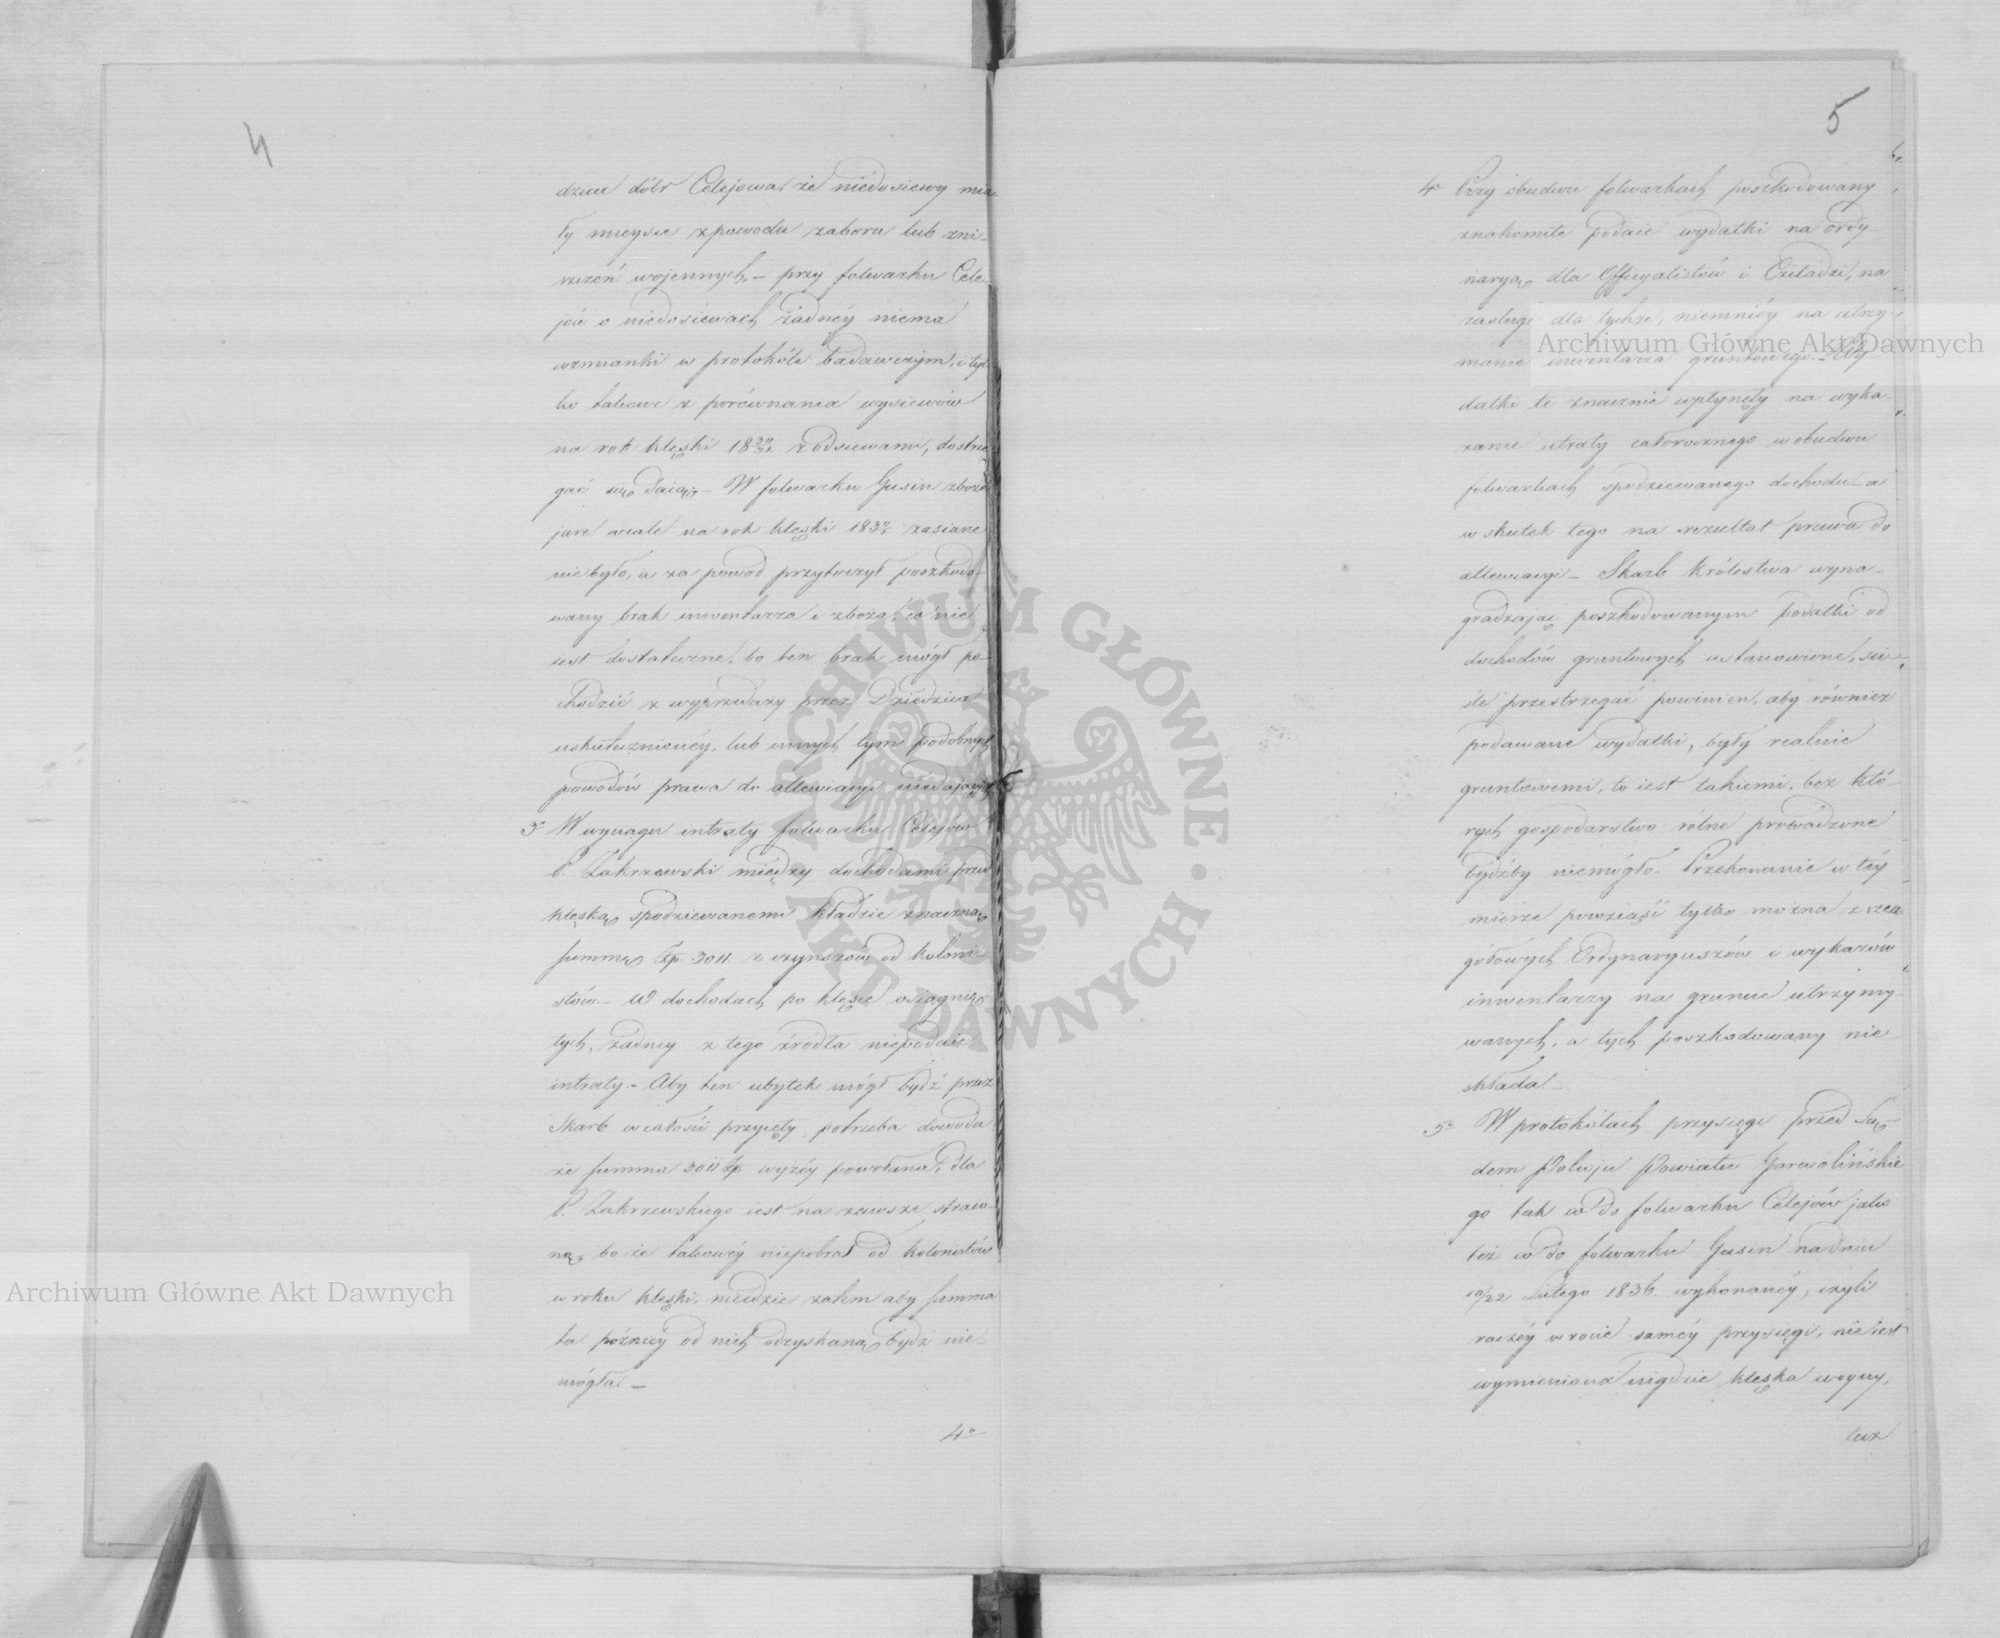 4
dzica dóbr Celejowa, że niedosiewy mia-
ły mieysce z powodu zaboru lub zni-
szczeń wojennych, – przy folwarku Cele-
jów o niedosiewach żadnéy niema
wzmianki w protokóle badawczym, i tyl-
ko takowe z porównania wysiewów
na rok klęski 18 30/31 z odsiewami, dostrze-
gać się daią, – W folwarku Gusin zboże
jare wcale na rok klęski 18 30/31 zasiane
nie było, a za powód przytoczył poszkodo-
wany brak inwentarza i zboża, co nie
iest dostateczne, bo ten brak mógł po-
chodzić z wyprzedaży przez Dziedzica
uskutecznionéy, lub innych tym podobnych
powodów prawa do allewiacyi niedających
3o W wyciągu intraty folwarku Celejów
P. Zakrzewski między dochodami przed
klęską spodziewanemi kładzie znaczną
summę Złp. 3011. z czynszów od koloni-
stów. – W dochodach po klęsce osiągnię-
tych, żadney z tego źródła niepodaie
intraty. – Aby ten ubytek mógł bydź przez
Skarb w całości przyięty, potrzeba dowodu
że summa 3011 Złp. wyżéy powołana, dla
P. Zakrzewskiego iest na zawsze straco-
ną, bo że takowéy niepobrał od kolonistów
w roku klęski, nieidzie zatem aby summa
ta późniéy od nich odzyskaną bydź nie-
mogła. –
4o
5
4o Przy obudwu folwarkach poszkodowany
znakomite podaie wydatki na ordy-
naryą dla Officyalistów i Czeladzi, na
zasługi dla tychże, niemniéy na utrzy-
manie inwentarza gruntowego. – Wy-
datki te znacznie wpłynęły na wyka-
zanie utraty całorocznego w obudwu
folwarkach spodziewanego dochodu – a
w skutek tego na rezultat prawa do
allewiacyi – Skarb Królestwa wyna-
gradzając poszkodowanym podatki od
dochodów gruntowych ustanowione, ści-
śle przestrzegać powinien, aby również
podawane wydatki, były realnie
gruntowemi, to iest takiemi, bez któ-
rych gospodarstwo rólne prowadzone
bydźby niemógło. Przekonanie w téy
mierze powziąść tylko można z szcze-
gółowych Ordynaryuszów i wykazów
inwentarzy na gruncie utrzymy-
wanych, a tych poszkodowany nie
składa –
5o W protokółach przysięgi przed Są-
dem Policji Powiatu Garwolińskie
go tak w do folwarku Celejów jako
też w do folwarku Gusin na dniu
10/22 Lutego 1836. wykonanéy, czyli
raczéy w rocie saméy przysięgi, nie iest
wymieniona nigdzie klęska woyny,
lecz
Archiwum Główne Akt Dawnych
Archiwum Główne Akt Dawnych
ARCHIWUM GŁÓWNE · AKT DAWNYCH ·